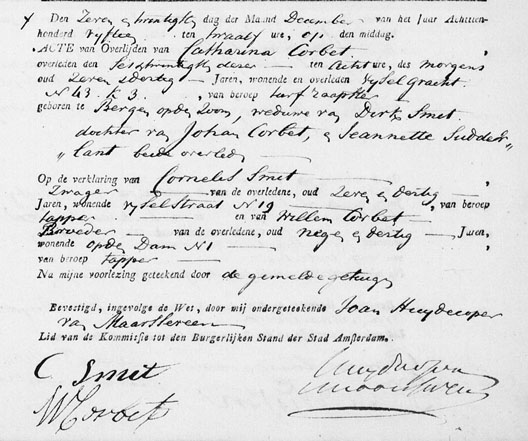 Den Zeven en twintigste dag der Maand December van het Jaar Achttien-
honderd vyftien ten twaalf ure, op den middag.
ACTE van Overlijden van Catharina Corbet
overleden den Ses en twintigste dezer ten acht ure, des morgens
oud Zeven en dertig Jaren, wonende en overleden Yselgracht
N 43. K 3. van beroep turfraapster
geboren te Bergen op den Zoom, weduwe van Dirk Smet
dochter van Johan Corbet, en Jeannette Sudder
"lant beide overleden
Op de verklaring van Cornelis Smet
Zwager van de overledene, oud Zeven en dertig
Jaren, wonende Yselstraat N 19 van beroep
tapper en van Willem Corbet
Broeder van de overledene, oud negen en dertig Jaren,
wonende op den Dam N 1
van beroep tapper
Na mijne voorlezing geteekend door de gemelde getuigen
Bevestigd, ingevolge de Wet, door mij ondergeteekende Joan Huydecoper
van Maarsseveen
Lid van de Kommissie tot den Burgerlijken Stand der Stad Amsterdam.
C Smet
W Corbet